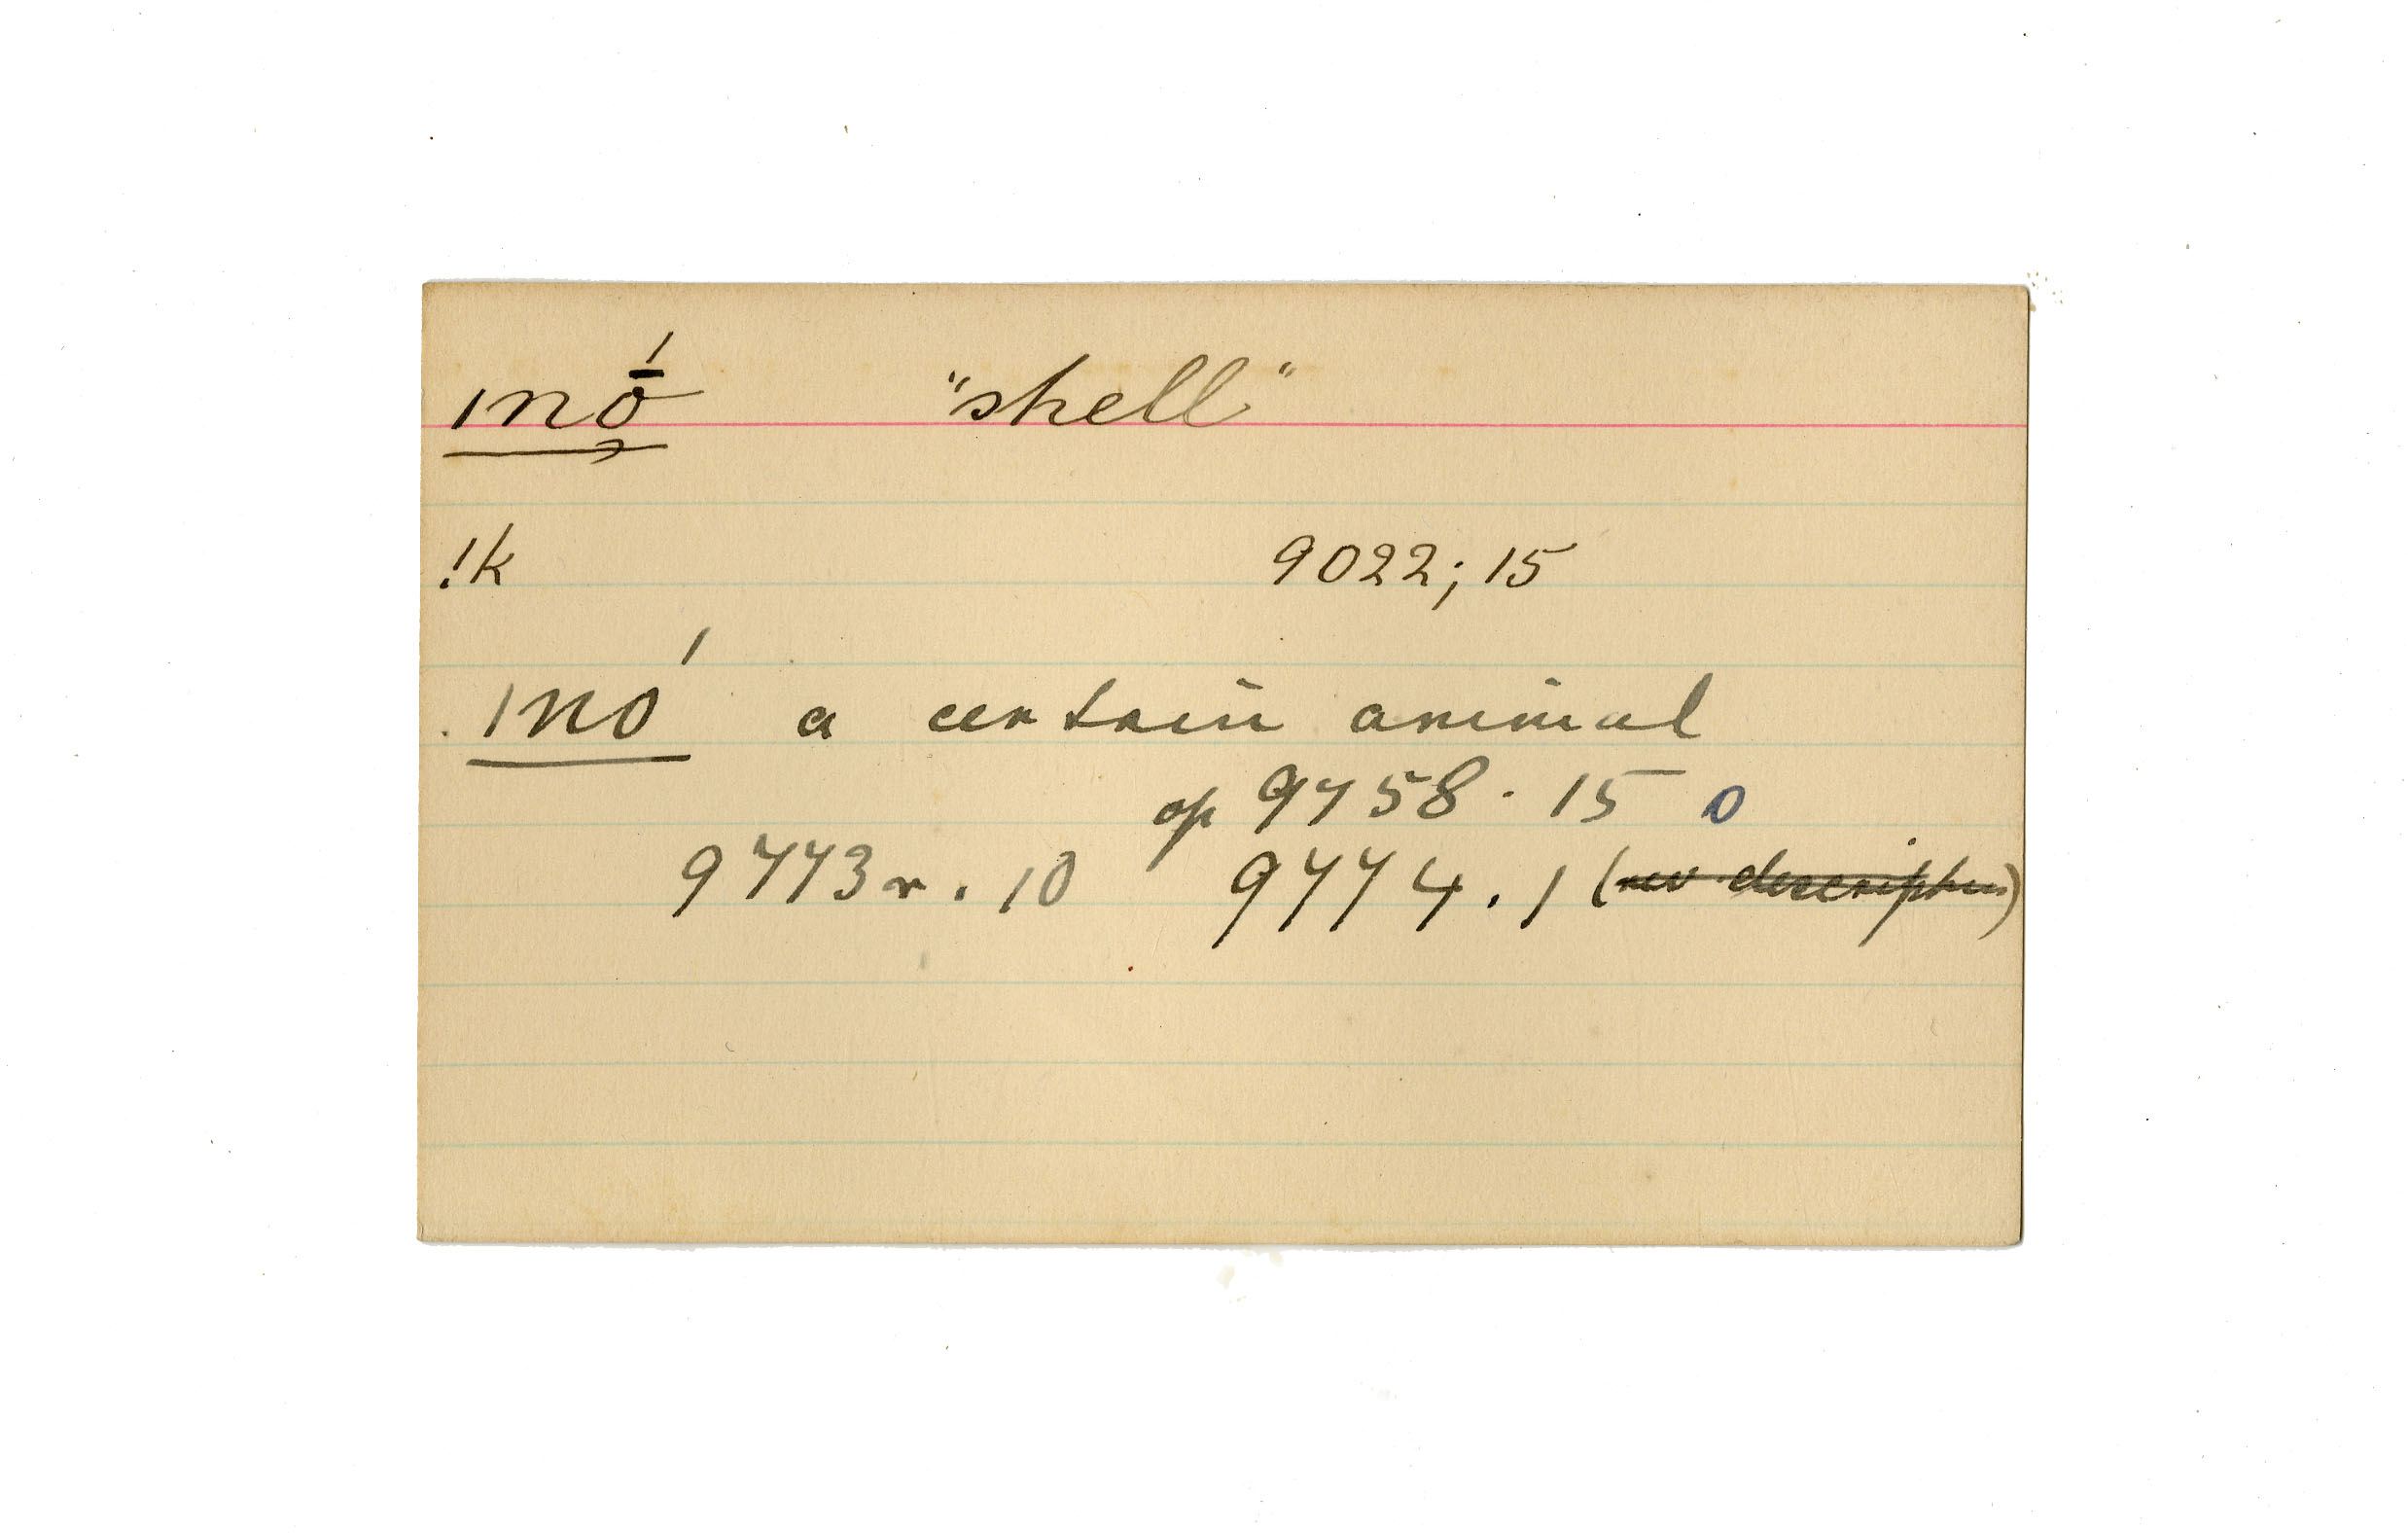 ınṓ̜ "shell"
!k 9022; 15
ınó a certain animal
op 9758 · 15 0
9773r. 10 9774.1 (rev description)